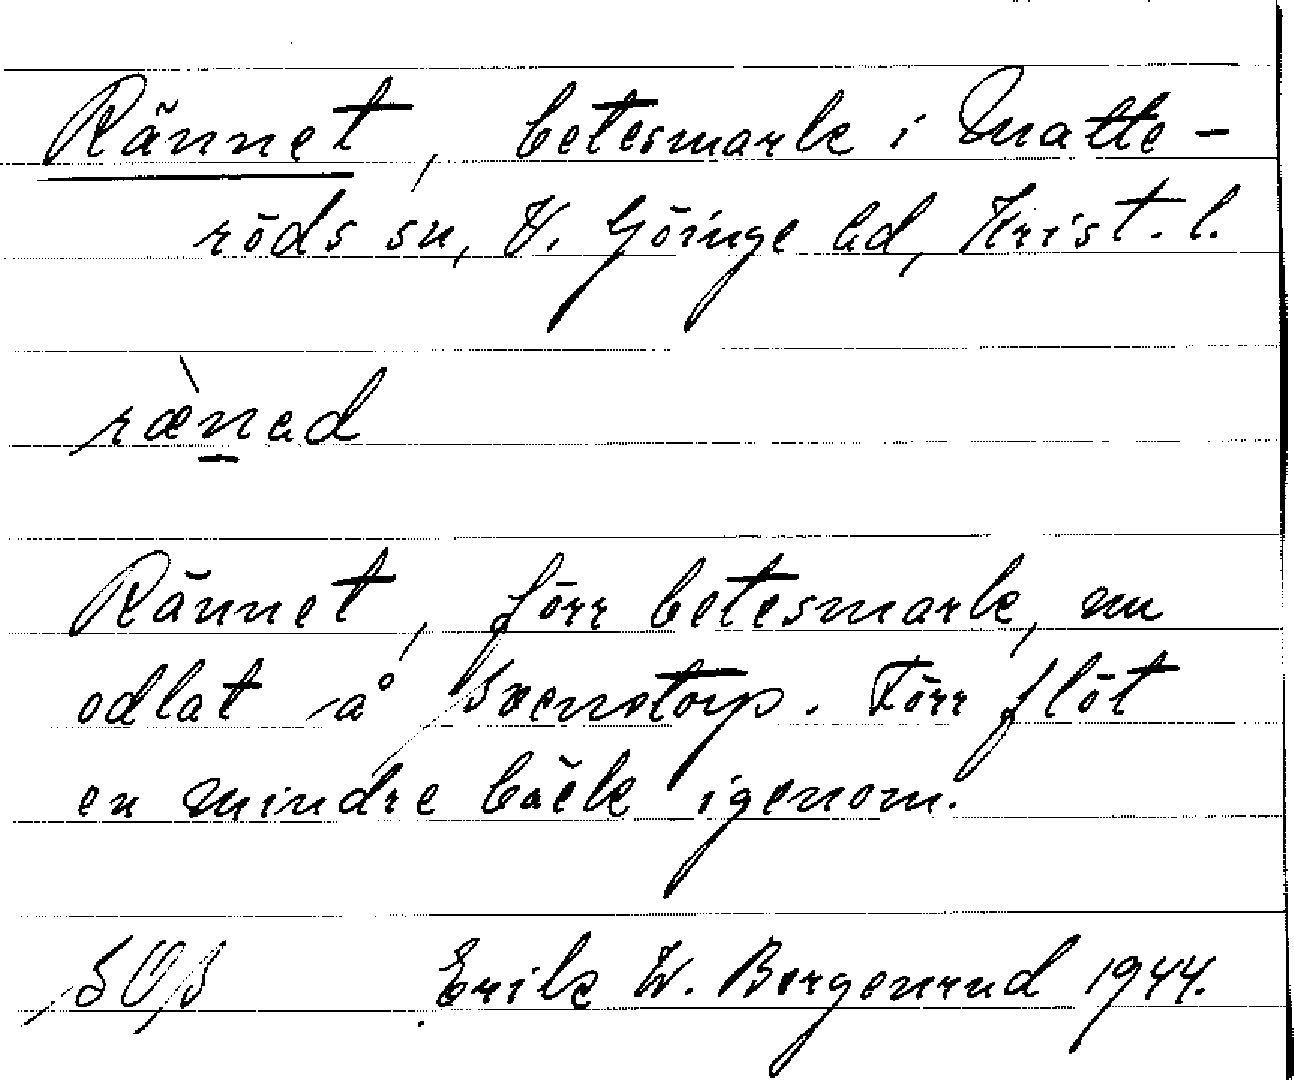 Rännet, betesmark i Matte-
röds sn, V. Göinge hd, Krist. l.
ræ̀n̲ad
Rännet, förr betesmark, nu
odlat å Svenstorp. Förr flöt
en mindre bäck igenom.
SOS Erik W. Borgenrud 1944.